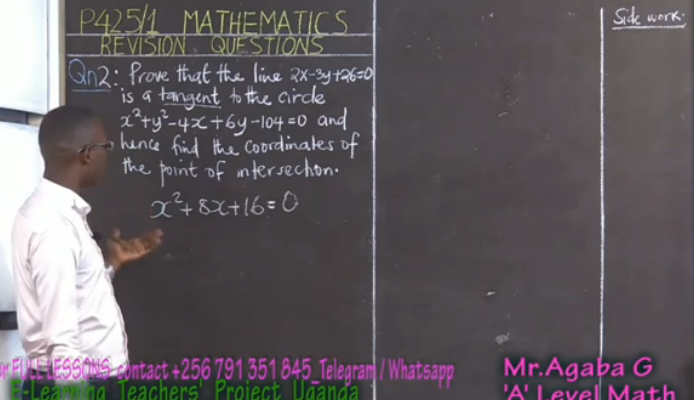 P425/1 MATHEMATICS
REVISION QUESTIONS
Side work:
Qn2: Prove that the line 2x-3y+26=0
is a tangent to the circle
x²+y²-4x+6y-104=0 and
hence find the coordinates of
the point of intersection.
x²+8x+16=0
or FULL LESSONS contact +256 791 351 845_Telegram / Whatsapp
E-Learning Teachers' Project Uganda
Mr.Agaba G
'A' Level Math